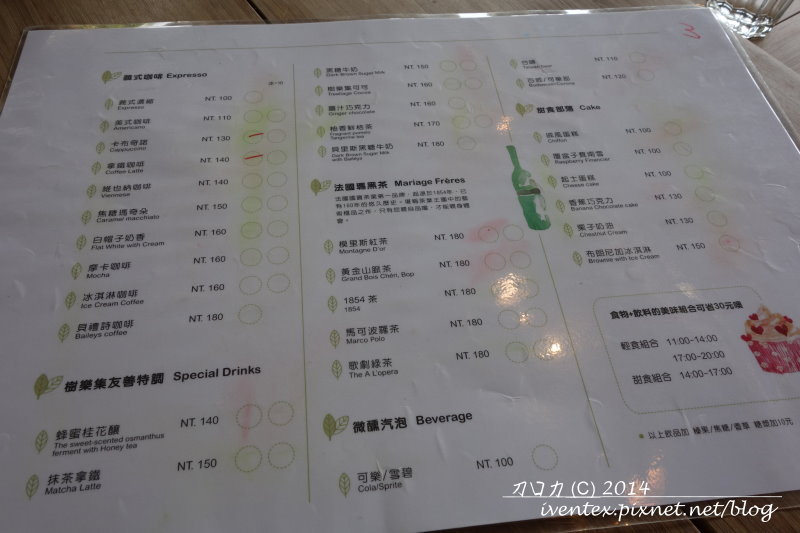 義式咖啡 Expresso
冰+10
義式濃縮 NT. 100
Expresso
美式咖啡 NT. 110
Americano
卡布奇諾 NT. 130
Cappuccino
拿鐵咖啡 NT. 140
Coffee Latte
維也納咖啡 NT. 140
Viennese
焦糖瑪奇朵 NT. 150
Caramel macchiato
白帽子奶香 NT. 160
Flat White with Cream
摩卡咖啡 NT. 160
Mocha
冰淇淋咖啡 NT. 160
Ice Cream Coffee
貝禮詩咖啡 NT. 180
Baileys coffee
樹樂集友善特調 Special Drinks
蜂蜜桂花釀 NT. 140
The sweet-scented osmanthus
ferment with Honey tea
抹茶拿鐵 NT. 150
Matcha Latte
黑糖牛奶 NT. 150
Dark Brown Sugar Milk
樹樂集可可 NT. 160
Treellage Cocoa
薑汁巧克力 NT. 160
Ginger chocolate
柚香鮮桔茶 NT. 170
Fragrant pomelo
Tangerine tea
貝里斯黑糖牛奶 NT. 180
Dark Brown Sugar Milk
with Baileys
法國瑪黑茶 Mariage Frères
法國國寶茶業第一品牌，起源於1854年，已
有160年的悠久歷史。
會。
模里斯紅茶 NT. 180
Montagne D'or
黃金山脈茶 NT. 180
Grand Bois Chéri, Bop
1854 茶 NT. 180
1854
馬可波羅茶 NT. 180
Marco Polo
歌劇綠茶 NT. 180
The A L'opera
微醺汽泡 Beverage
可樂/雪碧 NT. 100
Cola/Sprite
3
台啤 NT. 110
Taiwan beer
百威/可樂那 NT. 120
Budweiser/Corona
甜食部落 Cake
戚風蛋糕 NT. 100
Chiffon
覆盆子費南雪 NT. 150
Raspberry Financier
起士蛋糕 NT. 100
Cheese Cake
香蕉巧克力 NT. 130
Banana Chocolate Cake
栗子奶油 NT. 130
Chestnut Cream
布朗尼加冰淇淋 NT. 150
Brownie with Ice Cream
食物+飲料的美味組合可省30元噢
輕食組合 11:00-14:00
17:00-20:00
甜食組合 14:00-17:00
以上飲品加 榛果/焦糖/香草 糖漿加10元
オコカ (C) 2014
iventex.pixnet.net/blog